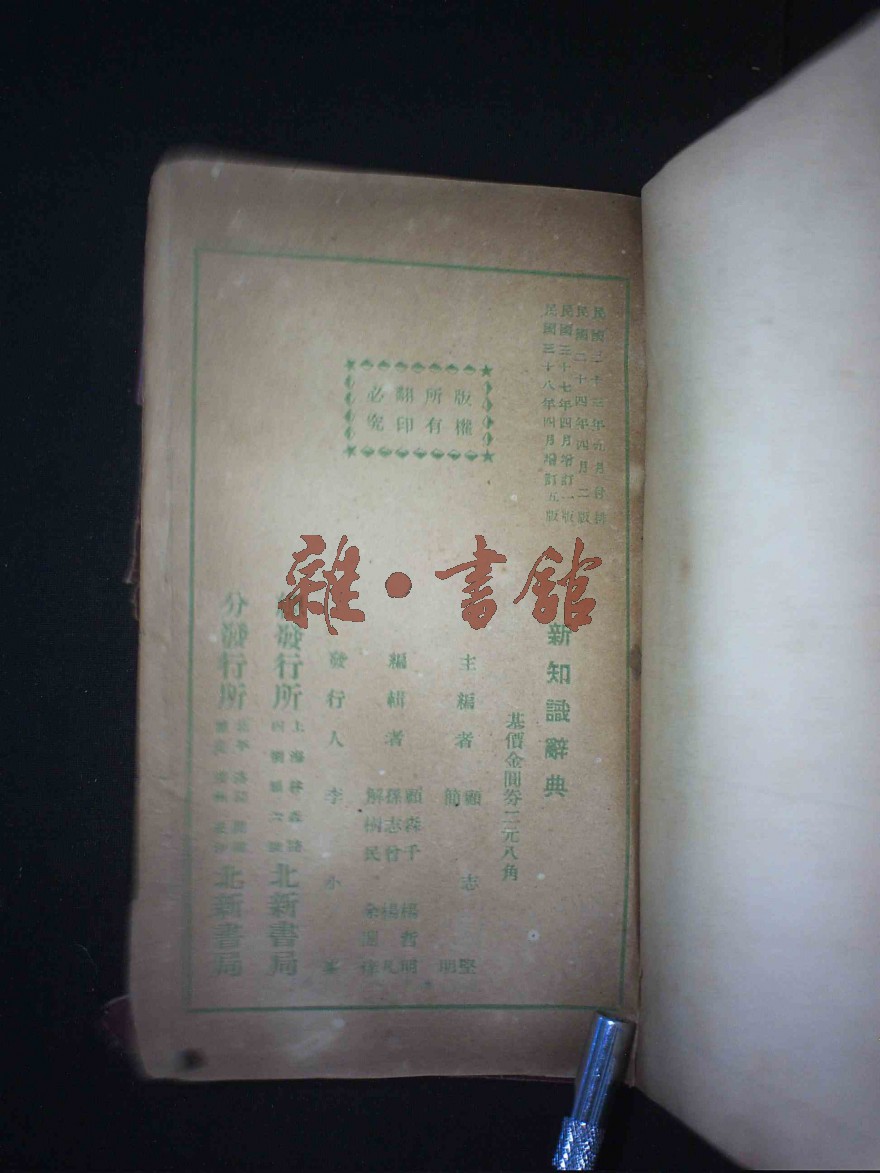 民國二十三年九月付排
民國二十四年四月二版
民國三十七年四月增訂一版
民國三十八年四月增訂五版
版權
所有
翻印
必究
新知識辭典
基價金圓券二元八角
主編者 顧志堅
簡 明
編輯者 顧森千 楊哲明
孫志曾 楊 凡
解樹民 余 徐
發行人 李小峯
發行所 上海 北新書局
分發行所 北新書局
雜·書館